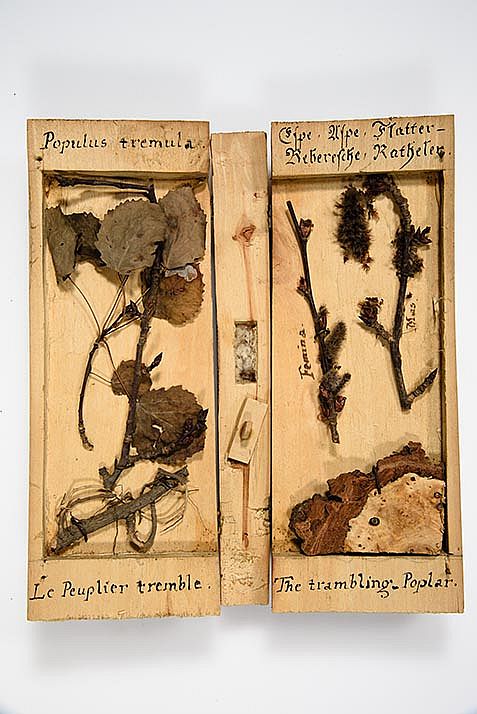 Populus tremula.
Le Peuplier tremble.
Espe, Aspe, Flatter-
Reberesche, Ratheler.
Femina.
Mas
The trambling Poplar.